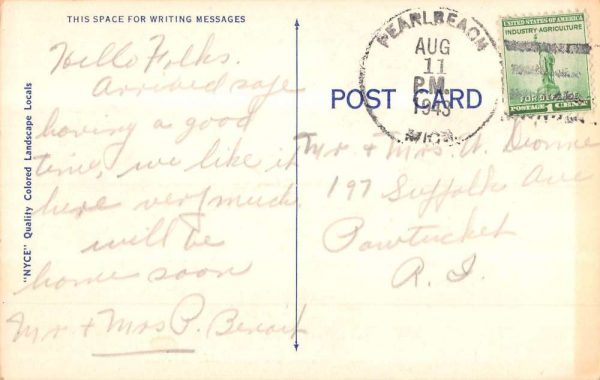 THIS SPACE FOR WRITING MESSAGES
"NYCE" Quality Colored Landscape Locals
Hello Folks.
Arrived safe
having a good
time, we like it
here very much
will be
home soon
Mr + Mrs P. Benoit
POST CARD
PEARLBEACH
AUG
11
P.M.
1943
MICH.
UNITED STATES OF AMERICA
INDUSTRY AGRICULTURE
FOR DEFENSE
POSTAGE 1 CENT
Mr + Mrs A. Dionne
197 Suffolk Ave
Pawtucket
R. I.